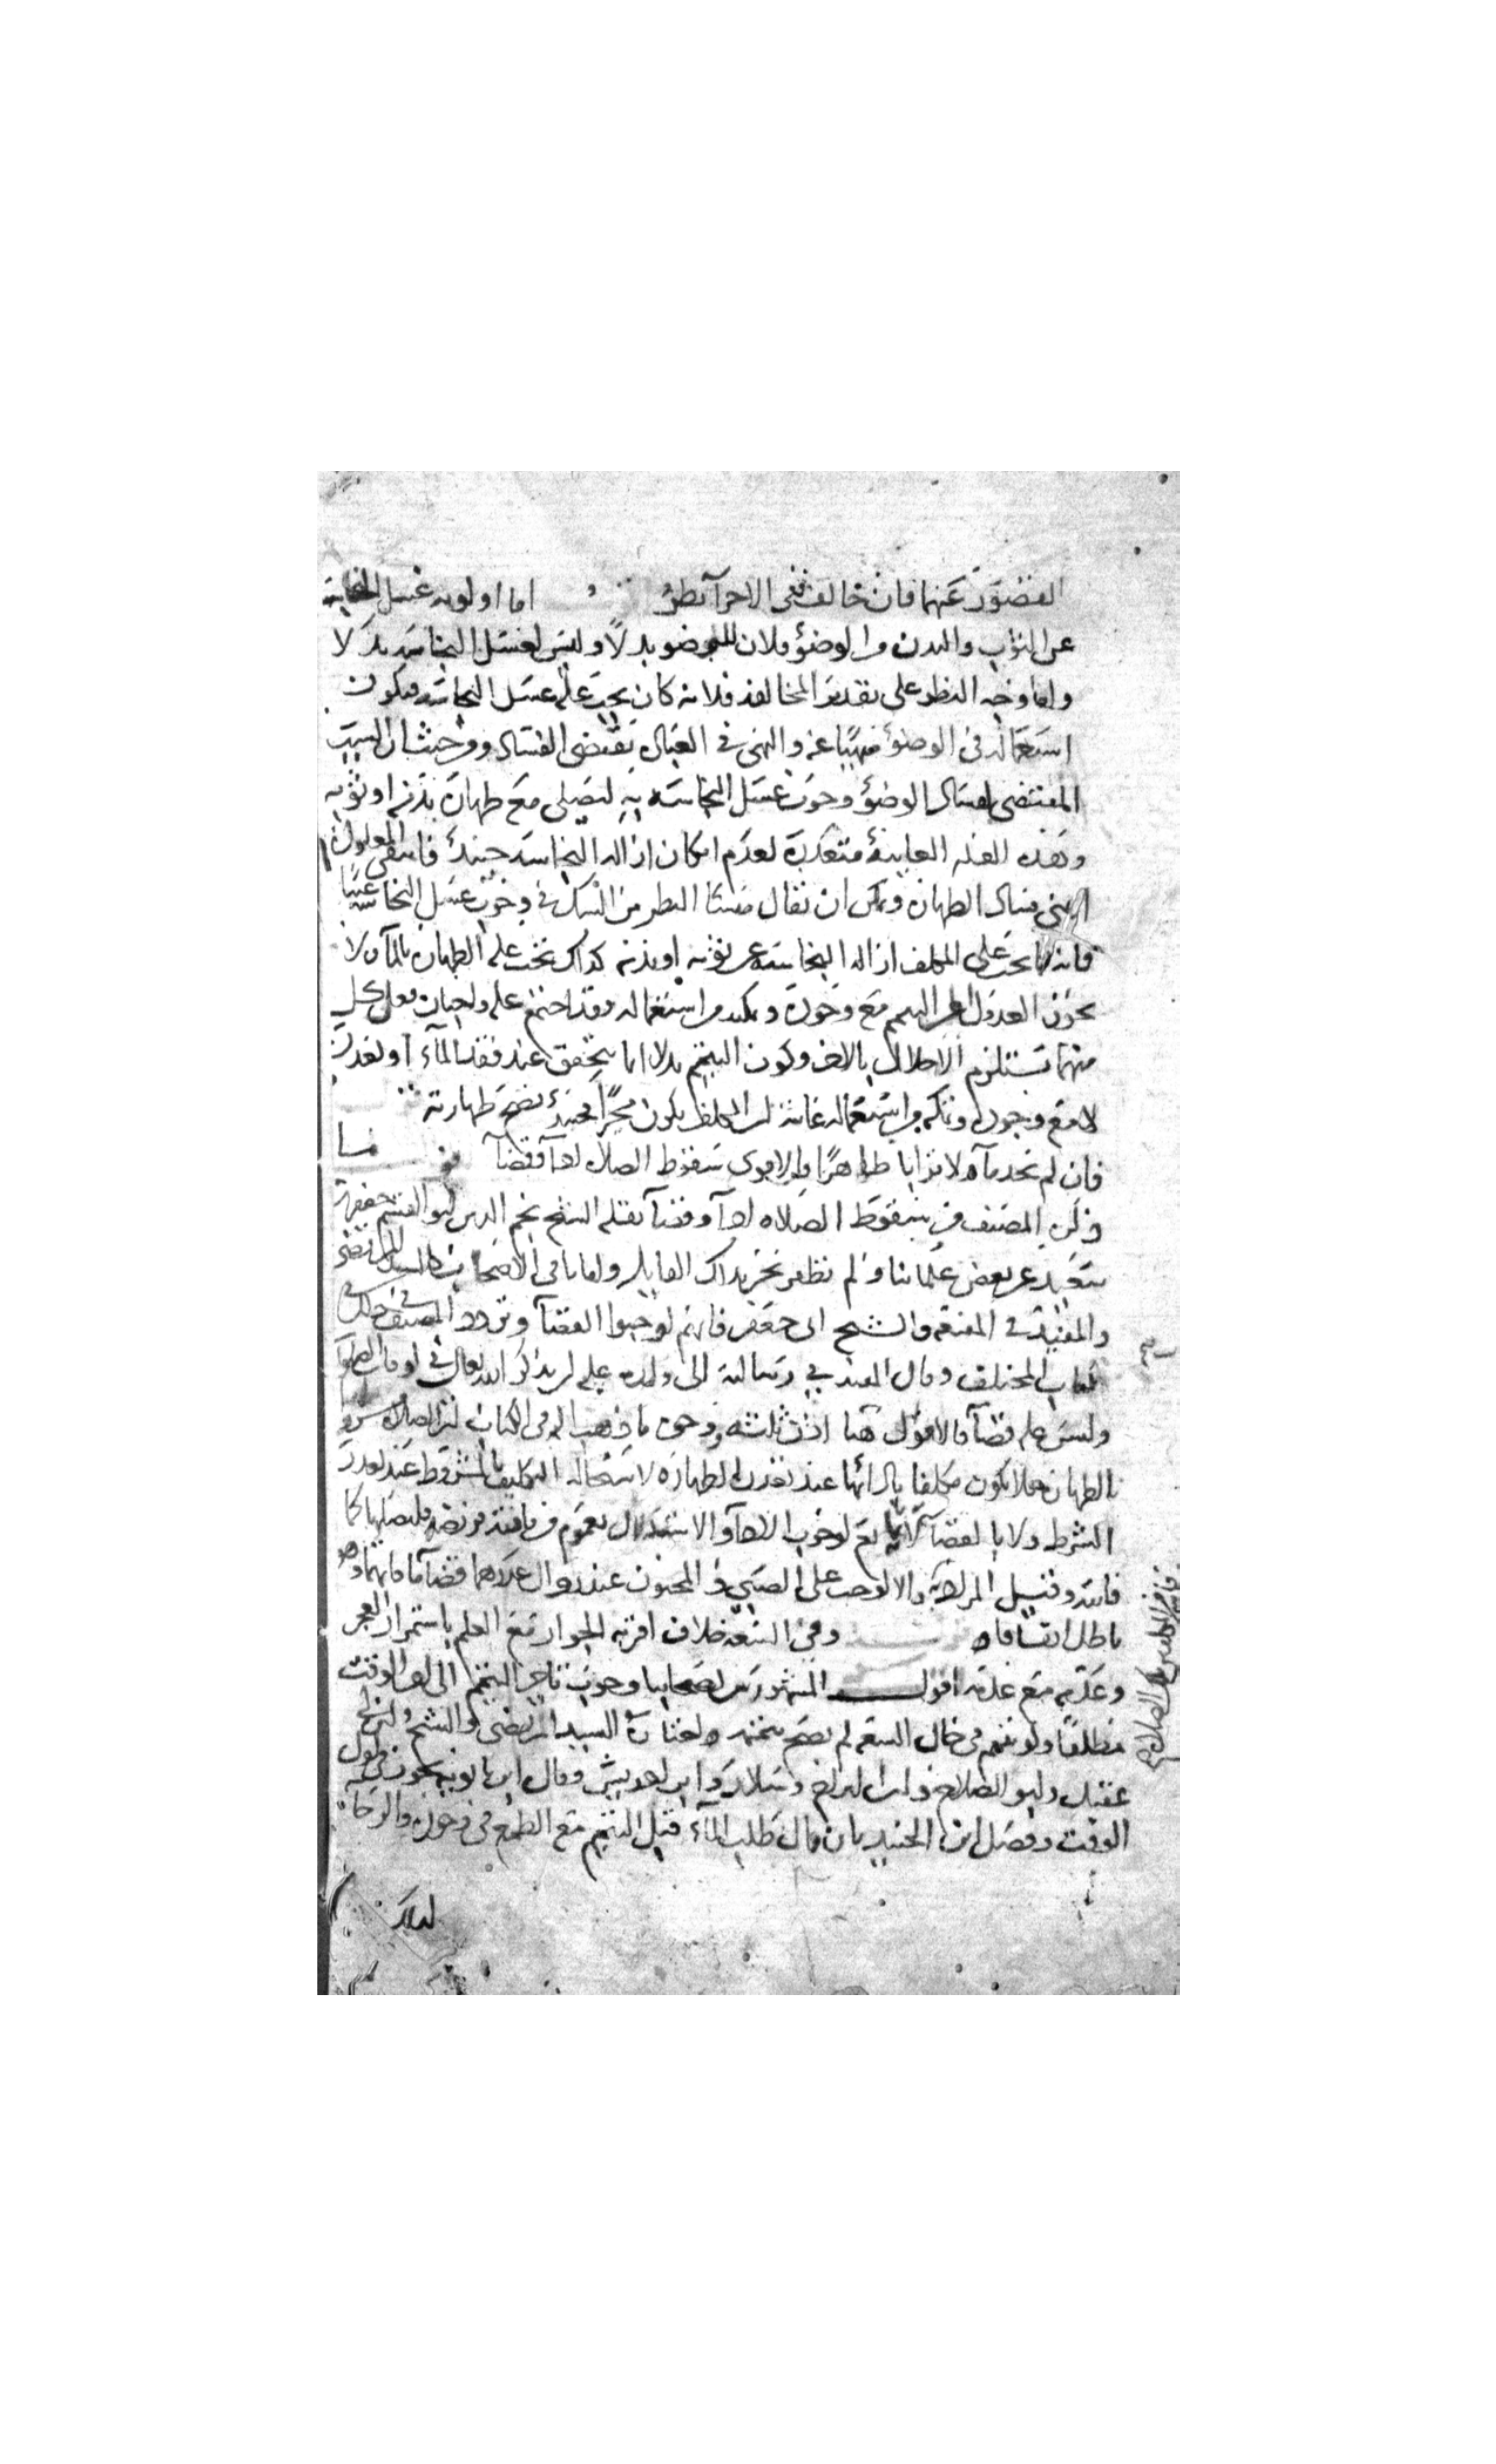 القصور عنهما فان خالف ففى الاجزآ نظر اما اولويه غسل النجاسة
عن الثوب والبدن من الوضوء فلان للوضو بدلاً وليس لغسل النجاسه بدلا
واما وجه النظر على تقدير المخالفه فلانه كان يجب عليه غسل النجاسه فيكون
استعماله فى الوضوء منهيا عنه والنهى فى العباده يقتضى الفساد ومن حيث ان السبب
المقتضى لفساد الوضوء وجوب غسل النجاسه به ليصلى مع طهارة بدنه او ثوبه
وهذه العله الغايية متعذرة لعدم امكان ازاله النجاسه حينئذ فانتفى المعلول
اعنى فساد الطهاره ويمكن ان يقال منشا النظر من الشك فى وجوب غسل النجاسه عينا
فانه كما يجب على المكلف ازاله النجاسه عن ثوبه او بدنه كذلك يجب عليه الطهاره بالمآ ولا
يجوز العدول الى التيمم مع وجوده وتمكنه من استعماله وقد اجتمع عليه واجبان فعل كل
منهما يستلزم الاخلال بالاخر وكون التيمم بدلا انما يتحقق عند فقد المآء او تعذره
لا مع وجوده وتمكنه من استعماله غايته ان المكلف يكون مخيرا فحينئذ تصح طهارته
فان لم يجد مآء ولا ترابا طاهرا فالاقوى سقوط الصلاه ادآ وقضآ
ذكره المصنف من سقوط الصلاه ادآ وقضآ نقله الشيخ نجم الدين ابو القسم جعفر بن
سعيد عن بعض علمائنا ولم نظفر نحن بذلك القايل واما باقى الاصحاب كالسيد المرتضى
والمفيد فى المقنعه والشيخ ابى جعفر فانهم اوجبوا القضآ وتردد المصنف فى ذلك فى
كتاب المختلف وقال المفيد فى رسالته الى ولده عليه ان يذكر الله تعالى فى اوقات الصلوة
وليس عليه قضآ فالاقوال هنا اذن ثلثه وحجه ما ذهب اليه فى الكتاب ان الصلاه مشروطة
بالطهاره فلا يكون مكلفا بادائها عند تعذر الطهاره لاستحاله التكليف بالمشروط عند تعذر
الشرط ولا بالقضآ لانه تابع لوجوب الادآ والاستدلال بعموم من فاتته فريضه فليصلها كما
فاتته وقيل المراد به والا لوجب على الصبى والمجنون عند زوال عذرهما قضآ ما فاتهما وهو
باطل اتفاقا وفى السعه خلاف اقربه الجواز مع العلم باستمرار العجز
وعدمه مع عدمه اقول المشهور بين اصحابنا وجوب تاخير التيمم الى اخر الوقت
مطلقا ولو تيمم فى حال السعه لم يصح تيممه واختاره السيد المرتضى والشيخ وابن ابى
عقيل وابو الصلاح وابن البراج وسلار وابن ادريس وقال ابن بابويه يجوز فى اول
الوقت وفصل ابن الجنيد بان قال طلب المآء قبل التيمم مع الطمع فى وجوده والرجا